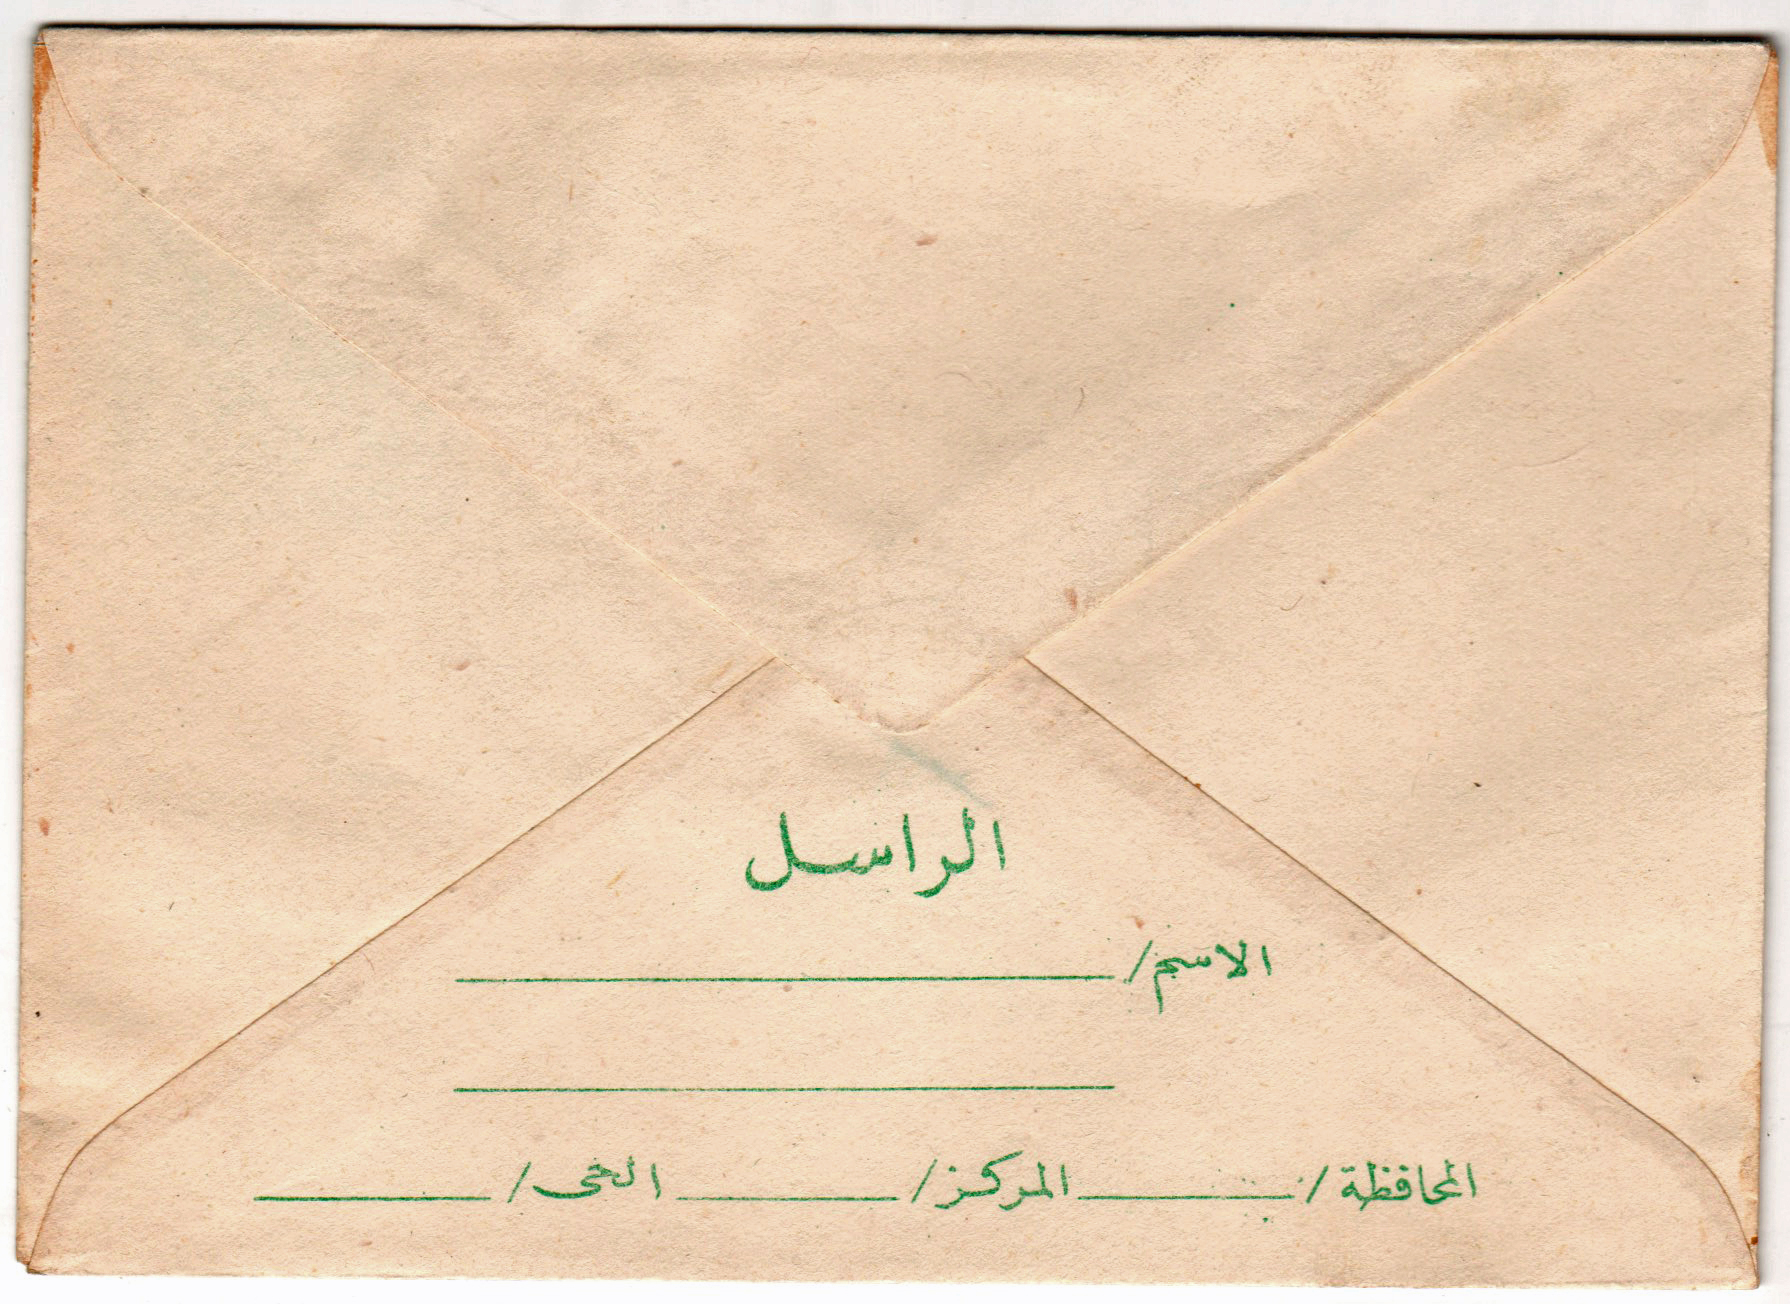 الراسل
الاسم/
المحافظة/ المركز/ الحى/